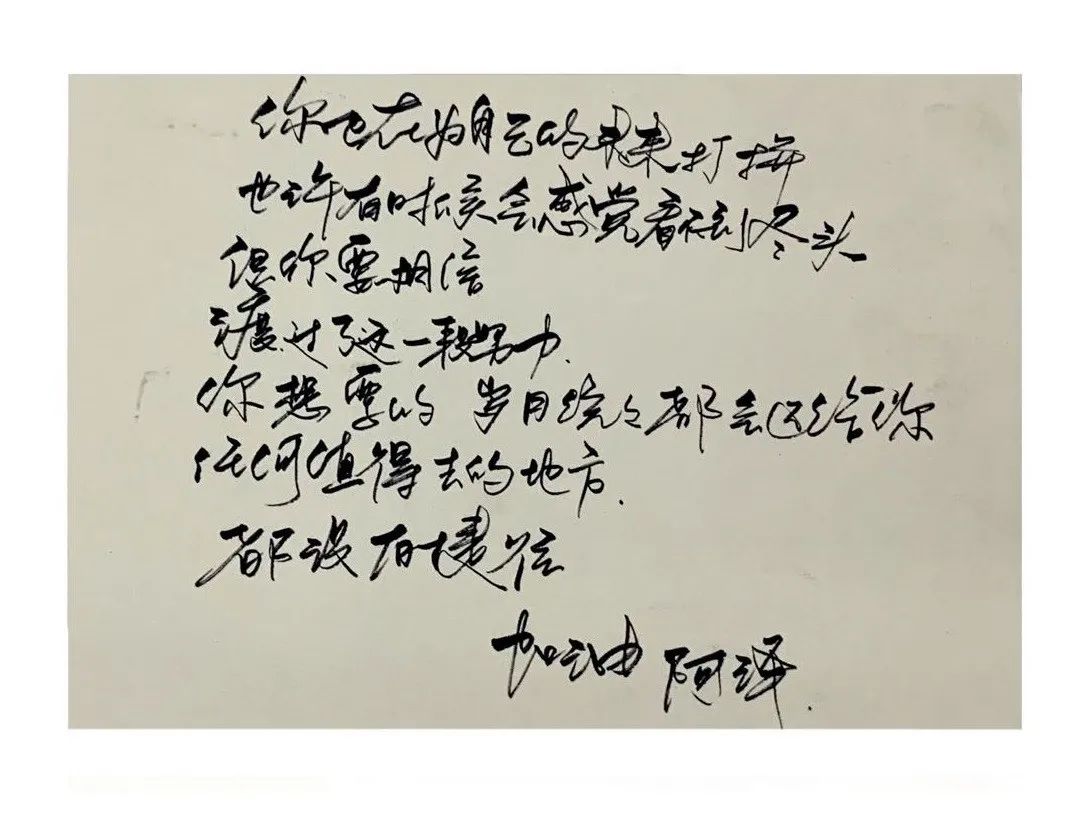 你也在为自己的未来打拼
也许有时候会感觉看不到尽头
但你要相信
渡过了这一段努力.
你想要的 岁月统统都会还给你
任何值得去的地方.
都没有捷径
加油 阿泽.